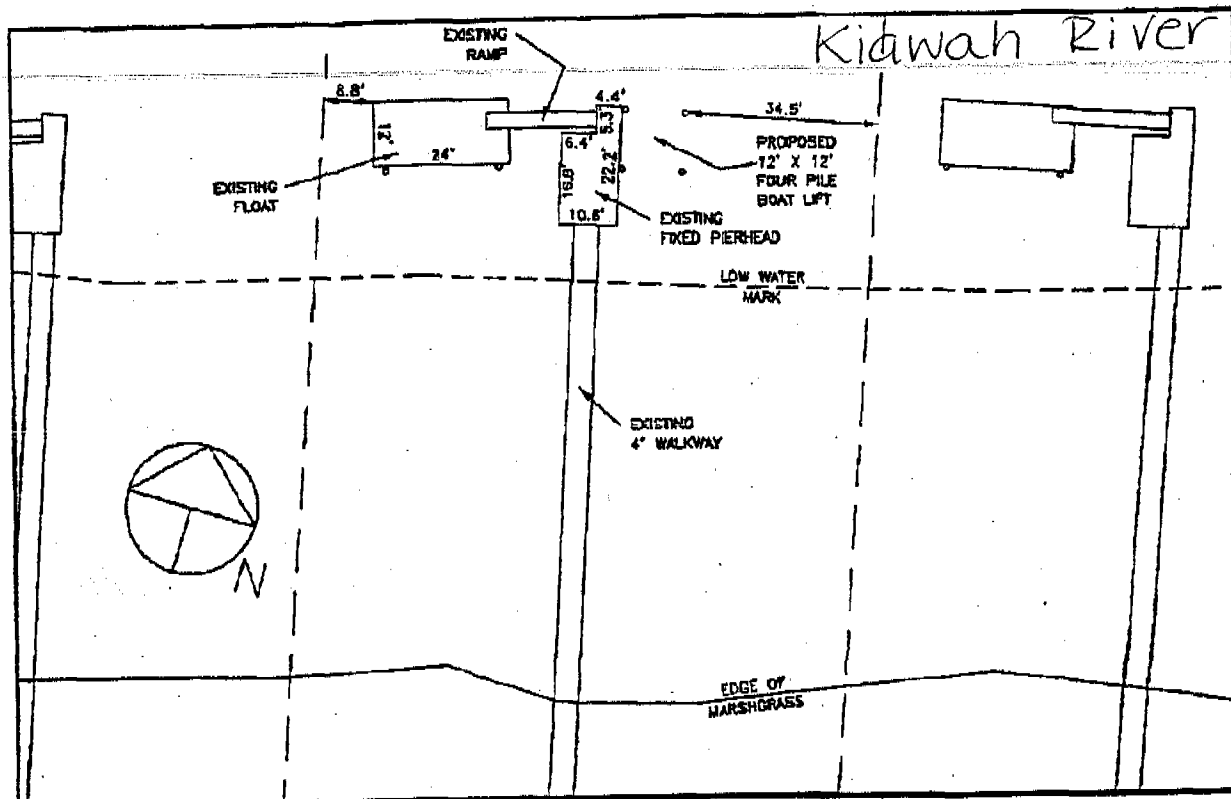 Kiawah River
EXISTING
RAMP
8.8'
12'
24'
EXISTING
FLOAT
4.4'
5.3'
6.4'
16.8'
22.2'
10.8'
34.5'
PROPOSED
12' X 12'
FOUR PILE
BOAT LIFT
EXISTING
FIXED PIERHEAD
LOW WATER
MARK
EXISTING
4' WALKWAY
N
EDGE OF
MARSHGRASS